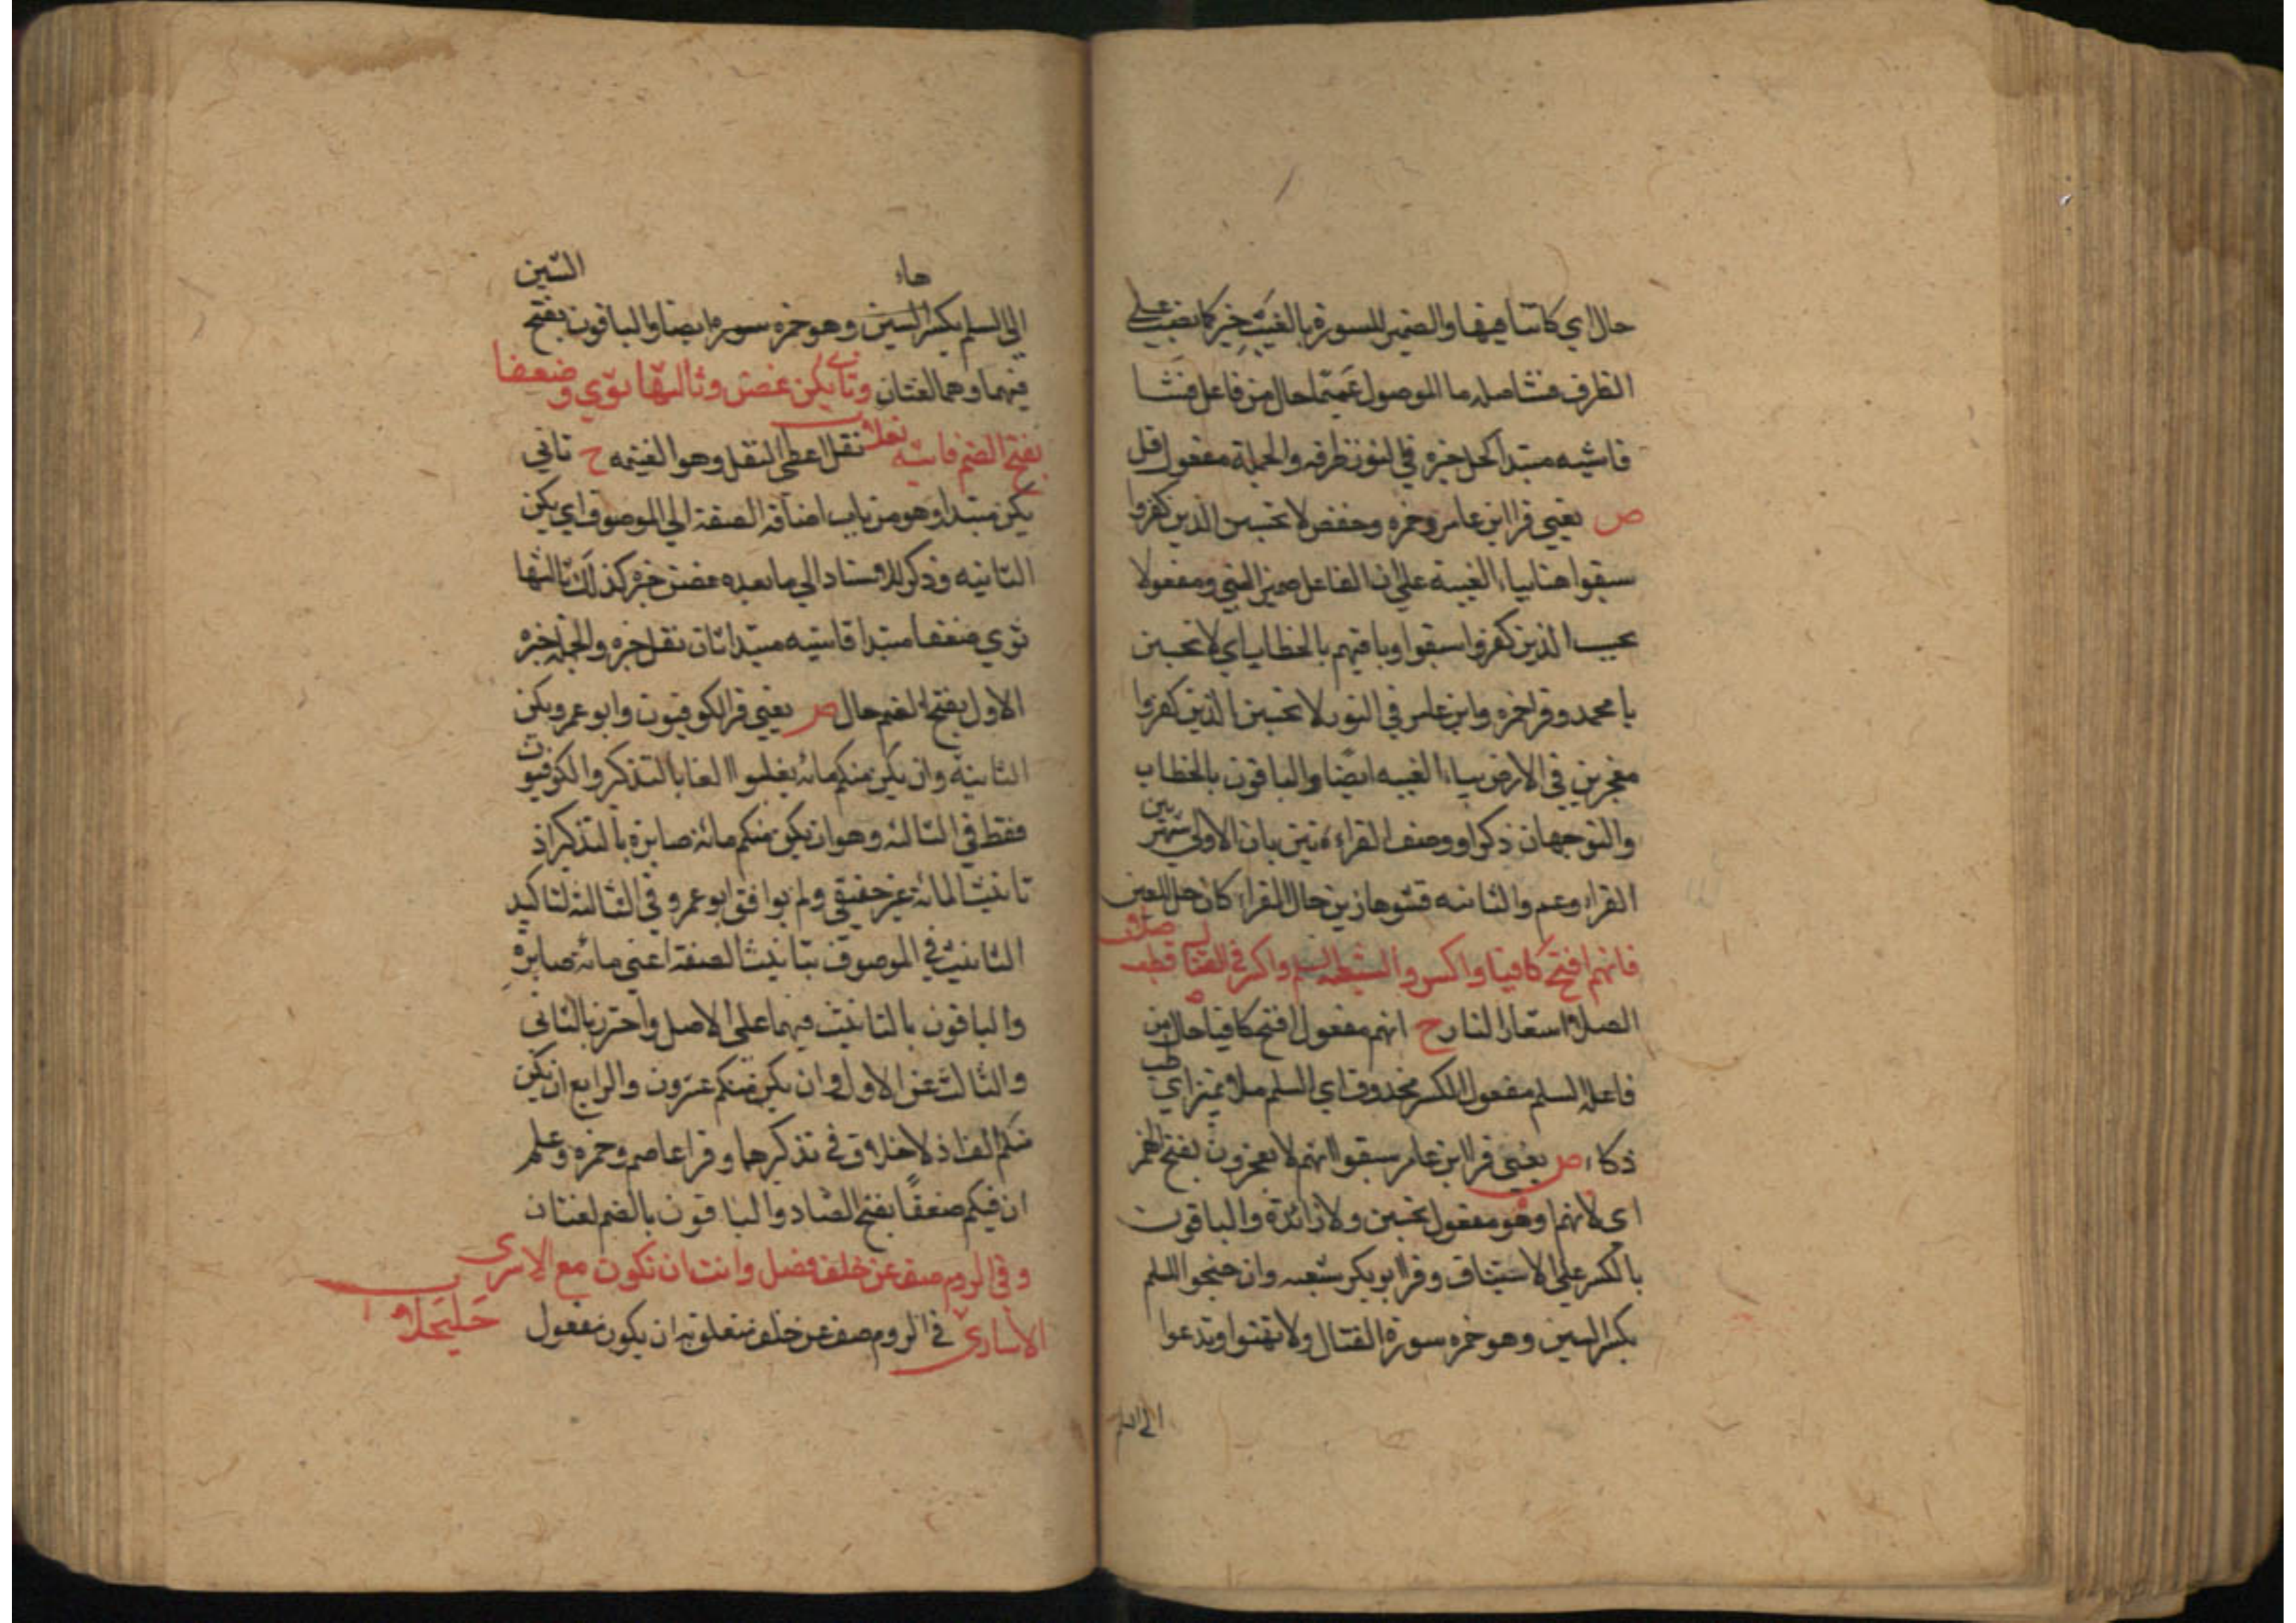 حال اي كائنا فيها والضمير للسورة بالغيب خبر كما نصب على
الظرف فشا صله ما الموصول عميما حال من فاعل فشا
فاشيه مبتدا كحل خبره في النور ظرفه والجملة مفعول قل
ص يعني قرا ابن عامر وحمزه وحفص لا تحسبن الذين كفروا
سبقوا هنا بياء الغيبة على ان الفاعل ضمير النبي ومفعولا
يحسب الذين كفروا سبقوا وباقيهم بالخطاب اي لا تحسبن
يا محمد وقرا حمزه وابن عامر في النور لا تحسبن الذين كفروا
معجزين في الارض بياء الغيبه ايضا والباقون بالخطاب
والتوجهان ذكرا ووصف القراءتين بان الاولى شهر بين
القراء وعم والثانيه فشوها زين حال القراء كان حل العين
فانهم افتح كافيا واكسروا لشعبة السلم واكسر في القتال فطب صلا
الصلا استعار النار ح انهم مفعول افتح كافيا حال من
فاعله السلم مفعول اكسر محذوف اي السلم صلا تميز اي طب
ذكاء ص يعني قرا ابن عامر سبقوا انهم لا يعجزون بفتح الهمز
اي لانهم او هو مفعول تحسبن ولا زائدة والباقون
بالكسر على الاستيناف وقرا ابو بكر شعبه وان جنحوا للسلم
بكسر السين وهو حمزه سورة القتال ولا تهنوا وتدعوا
الى السلم
الى السلم بكسر السين وهو حمزه سورها ايضا والباقون بفتح السين
فيهما وهما لغتان وثاني يكن غصن وثالثها ثوى وضعفا
بفتح الضم فاشيه نفلا نفل اعطى النفل وهو الغنيمه ح ثاني
يكن مبتدا وهو من باب اضافة الصفة الى الموصوف اي يكن
الثانيه وذكر للاسناد الى ما بعده غصن خبره كذلك ثالثها
ثوى ضعفا مبتدا فاشيه مبتدا ثان نفل خبره والجملة خبر
الاول بفتح الضم حال ص يعني قرا الكوفيون وابو عمرو يكن
الثانية وان يكن منكم مائة يغلبوا الفا بالتذكير والكوفيون
فقط في الثالثه وهو ان يكن منكم مائة صابرة بالتذكير اذ
تانيث المائة غير حقيقي ولم يوافق ابو عمرو في الثالثه لتاكيد
التانيث في الموصوف بتانيث الصفة اعني مائة صابرة
والباقون بالتانيث فيهما على الاصل واحترز بالثاني
والثالث عن الاول وان يكن منكم عشرون والرابع ان يكن
منكم الف اذ لا خلاف في تذكيرهما وقرا عاصم وحمزه وعلم
ان فيكم ضعفا بفتح الضاد والباقون بالضم لغتان
وفي الروم صف عن خلف فصل وانث ان تكون مع الاسرى
الاسارى حلا حلا في الروم صف عن خلف متعلق به ان يكون مفعول